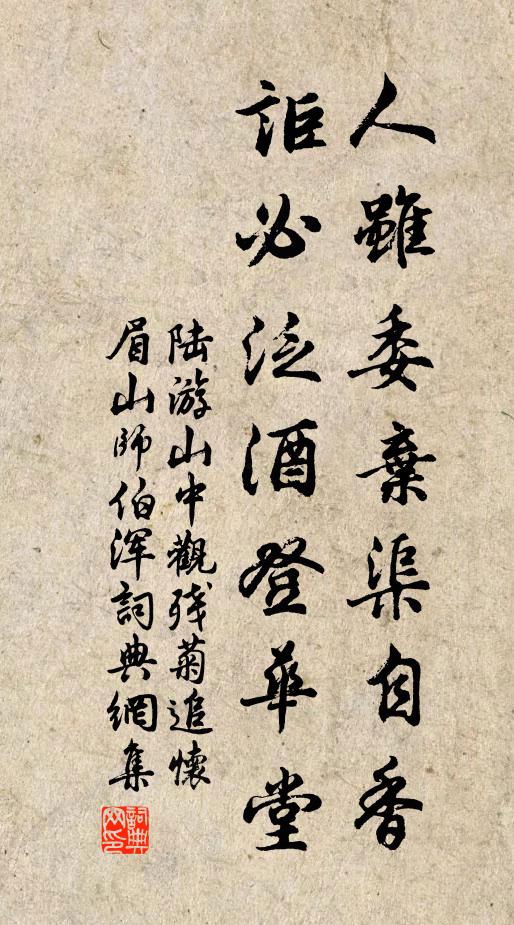 人雖委棄渠自香
詎必泛酒登華堂
陸游山中觀残菊追懷
眉山師伯浑詞典網集
詞典
网印